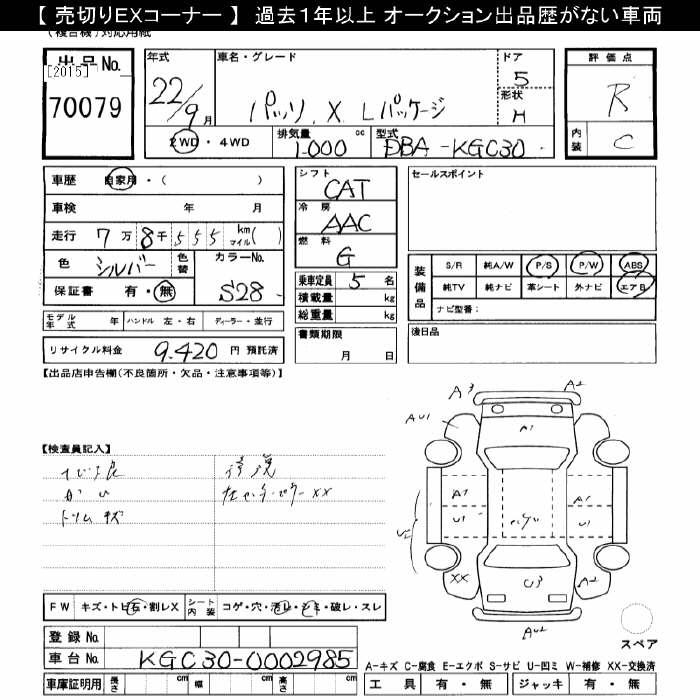 【 売切りEXコーナー 】 過去1年以上 オークション出品歴がない車両
(複合機)対応用紙
出品No.
[2015]
70079
年式
22/9月
車名・グレード
パッソ X Lパッケージ
ドア
5
形状
H
評価点
R
内装
C
2WD・4WD
排気量 cc
1000
型式
DBA-KGC30
車歴 自家用・( )
車検 年 月
走行 7万8千555 km マイル( )
色 シルバー
色替
カラーNo.
S28
保証書 有・無
モデル年式 年
ハンドル 左・右
ディーラー・並行
リサイクル料金 9.420 円 預託済
シフト
CAT
冷房
AAC
燃料
G
乗車定員 5 名
積載量 kg
総重量 kg
書類期限
月 日
セールスポイント
装備品
S/R 純A/W P/S P/W ABS
純TV 純ナビ 革シート 外ナビ エアB
ナビ型番:
後日品
【出品店申告欄(不良箇所・欠品・注意事項等)】
【検査員記入】
トリム キズ
FW キズ・トビ石・割レX
シート内装 コゲ・穴・汚レ・シミ・破レ・スレ
登録No.
車台No. KGC30-0002985
車庫証明用 長さ cm 幅 cm 高さ cm
A3
A2
AU1
A1
A1
A1
U1
U1
XX
U3
A2
AU2
スペア
A-キズ C-腐食 E-エクボ S-サビ U-凹ミ W-補修 XX-交換済
工具 有・無 ジャッキ 有・無